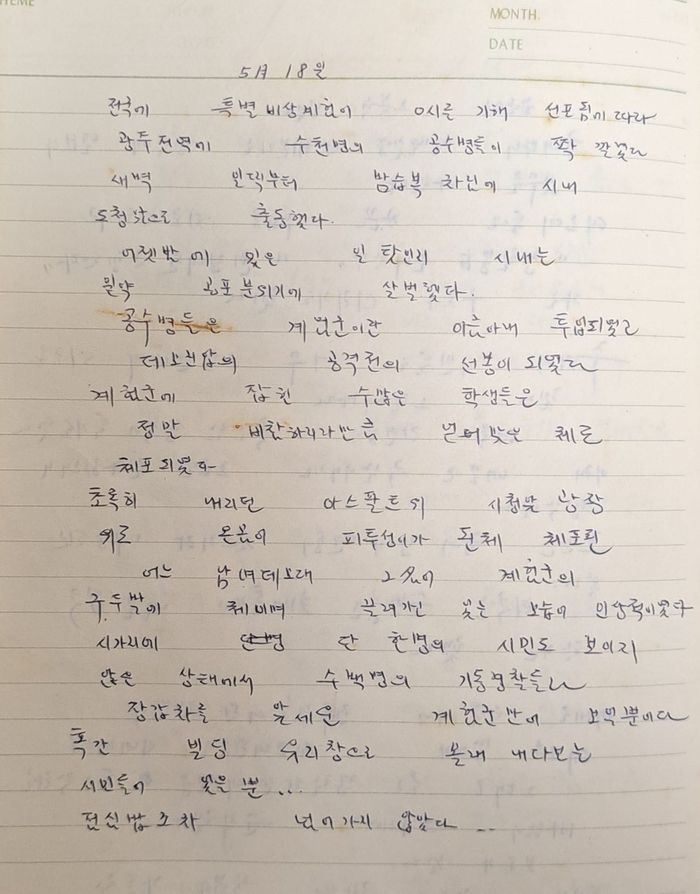 MONTH.
DATE
5月 18일
전국에 특별 비상계엄이 0시를 기해 선포됨에 따라
광주전역에 수천명의 공수병들이 쫙 깔렸다
새벽 일찍부터 밤습복 차림에 시내
도청앞으로 출동했다.
어젯밤에 있은 일 탓인지 시내는
공포분위기에 살벌했다.
공수병들은 계엄군이란 이름아래 투입되었고
데모진압의 공격전의 선봉이 되었다
계엄군에 잡힌 수많은 학생들은
정말 비참하리라만큼 얻어맞은 체로
체포되었다
초록히 내리던 아스팔트의 시청앞 광장
위로 온몸이 피투성이가 된체 체포된
어느 남녀데모대 그 몇이 계엄군의
구두발에 체이며 끌려가던 모습이 인상적이었다
시가지에 단 한명의 시민도 보이지
않은 상태에서 수백명의 기동경찰들과
장갑차를 앞세운 계엄군만이 보일뿐이다
폭간 빌딩 유리창으로 몰래 내다보는
시민들이 있을 뿐...
점심밥조차 넘어가지 않았다 ...